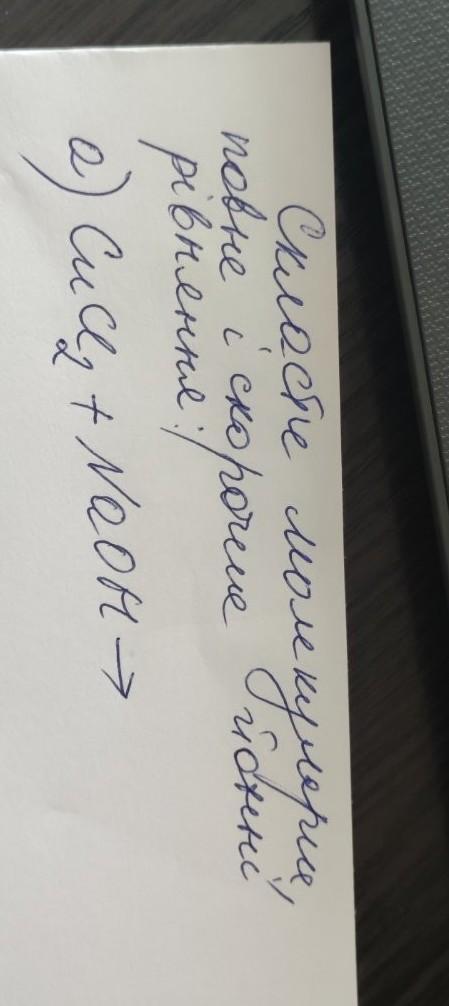 Скласти молекулярне,
повне і скорочене йонні
рівняння:
а) CuCl2 + NaOH →